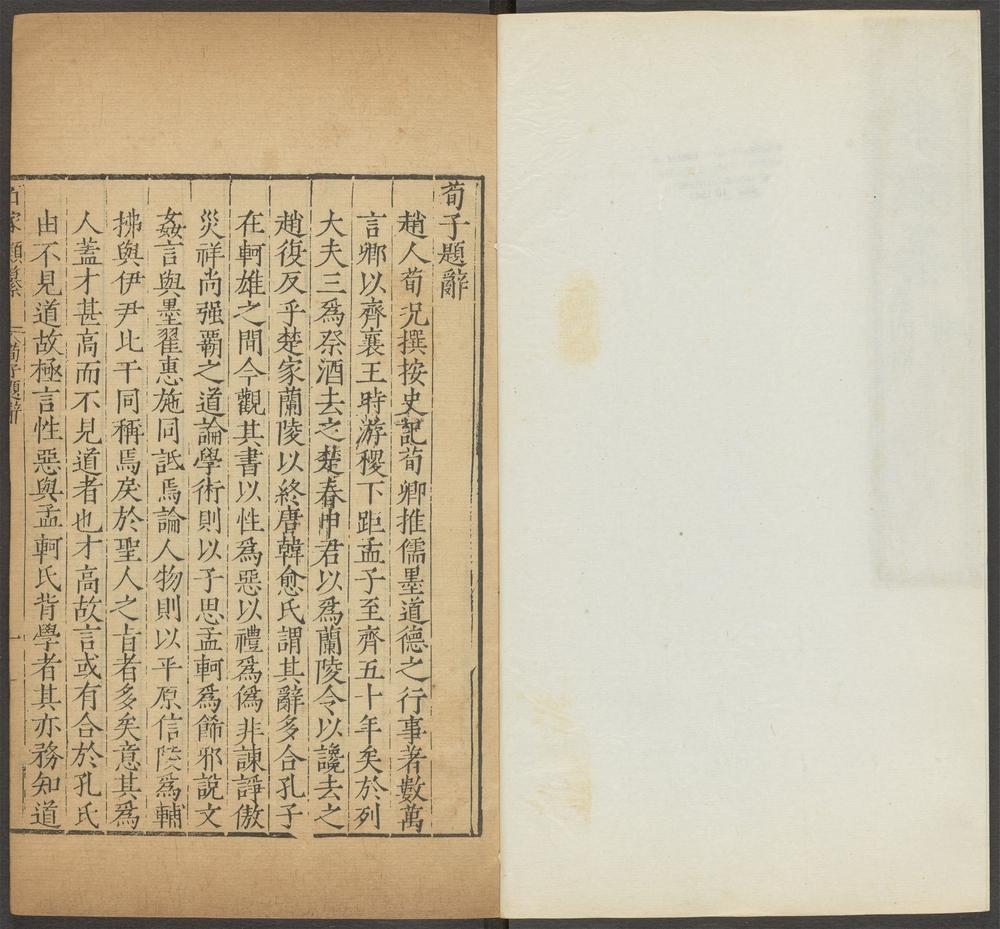 荀子題辭
趙人荀況撰按史記荀卿推儒墨道德之行事著數萬
言卿以齊襄王時游稷下距孟子至齊五十年矣於列
大夫三爲祭酒去之楚春申君以爲蘭陵令以讒去之
趙復反乎楚家蘭陵以終唐韓愈氏謂其辭多合孔子
在軻雄之間今觀其書以性爲惡以禮爲僞非諫諍傲
災祥尚强覇之道論學術則以子思孟軻爲餙邪說文
姦言與墨翟惠施同詆焉論人物則以平原信陵爲輔
拂與伊尹比干同稱焉戾於聖人之㫖者多矣意其爲
人蓋才甚高而不見道者也才高故言或有合於孔氏
由不見道故極言性惡與孟軻氏背學者其亦務知道
百家類纂 荀子題辭 一